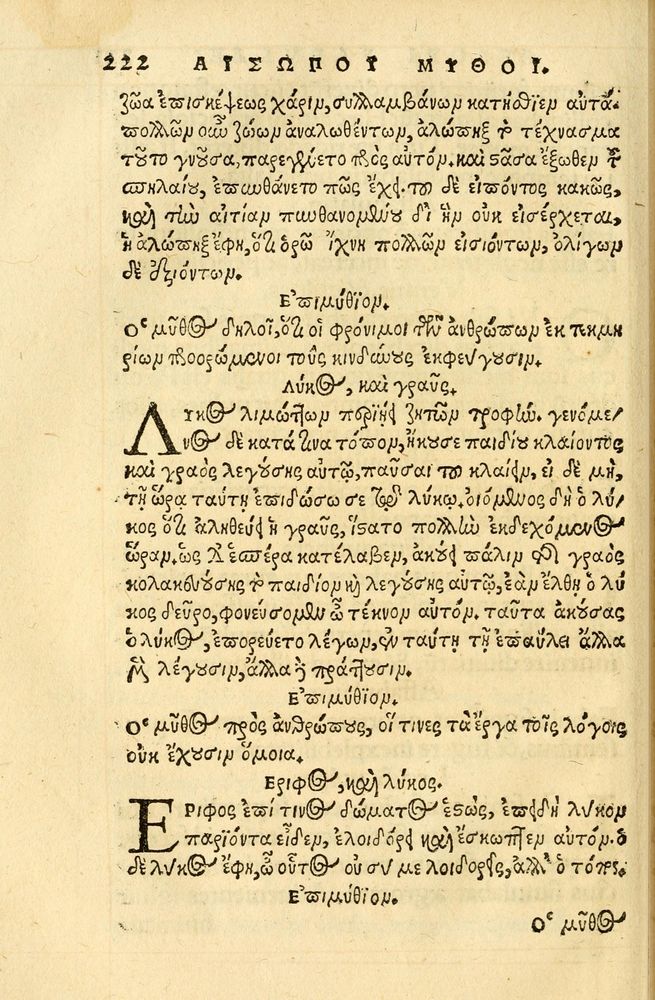 222 ΑΙΣΩΠΟΥ ΜΥΘΟΙ.
ζῶα ἐπισκέψεως χάριν, συλλαμβάνων κατήσθιεν αὐτά.
πολλῶν οὖν ζώων ἀναλωθέντων, ἀλώπηξ τὸ τέχνασμα
τοῦτο γνοῦσα, παρεγένετο πρὸς αὐτόν. καὶ στᾶσα ἔξωθεν τοῦ
σπηλαίου, ἐπυνθάνετο πῶς ἔχει. τοῦ δὲ εἰπόντος κακῶς,
καὶ τὴν αἰτίαν πυνθανομένου δι' ἣν οὐκ εἰσέρχεται,
ἡ ἀλώπηξ ἔφη, ὅτι ὁρῶ ἴχνη πολλῶν εἰσιόντων, ὀλίγων
δὲ ἐξιόντων.
Ἐπιμύθιον.
Ὁ μῦθος δηλοῖ, ὅτι οἱ φρόνιμοι τῶν ἀνθρώπων ἐκ τεκμη
ρίων προορώμενοι τοὺς κινδύνους ἐκφεύγουσιν.
Λύκος, καὶ γραῦς.
Λύκος λιμώττων περιῄει ζητῶν τροφήν. γενόμε/
νος δὲ κατά τινα τόπον, ἤκουσε παιδίου κλαίοντος
καὶ γραὸς λεγούσης αὐτῷ, παῦσαι τοῦ κλαίειν, εἰ δὲ μὴ,
τῇ ὥρᾳ ταύτῃ ἐπιδώσω σε τῷ λύκῳ. οἰόμενος δὴ ὁ λύ/
κος ὅτι ἀληθεύει ἡ γραῦς, ἵστατο πολλὴν ἐκδεχόμενος
ὥραν. ὡς δ' ἑσπέρα κατέλαβεν, ἀκούει πάλιν τῆς γραὸς
κολακευούσης τὸ παιδίον καὶ λεγούσης αὐτῷ, ἐὰν ἔλθῃ ὁ λύ
κος δεῦρο, φονεύσομεν ὦ τέκνον αὐτόν. ταῦτα ἀκούσας
ὁ λύκος, ἐπορεύετο λέγων, ἐν ταύτῃ τῇ ἐπαύλει ἄλλα
μὲν λέγουσιν, ἄλλα δὲ πράττουσιν.
Ἐπιμύθιον.
Ὁ μῦθος πρὸς ἀνθρώπους, οἵ τινες τὰ ἔργα τοῖς λόγοις
οὐκ ἔχουσιν ὅμοια.
Ἔριφος, καὶ λύκος.
ΕΡΙΦΟΣ ἐπί τινος δώματος ἑστώς, ἐπειδὴ λύκον
παρϊόντα εἶδεν, ἐλοιδόρει καὶ ἔσκωπτεν αὐτόν. ὁ
δὲ λύκος ἔφη, ὦ οὗτος οὐ σύ με λοιδορεῖς, ἀλλ' ὁ τόπος.
Ἐπιμύθιον.
Ὁ μῦθος